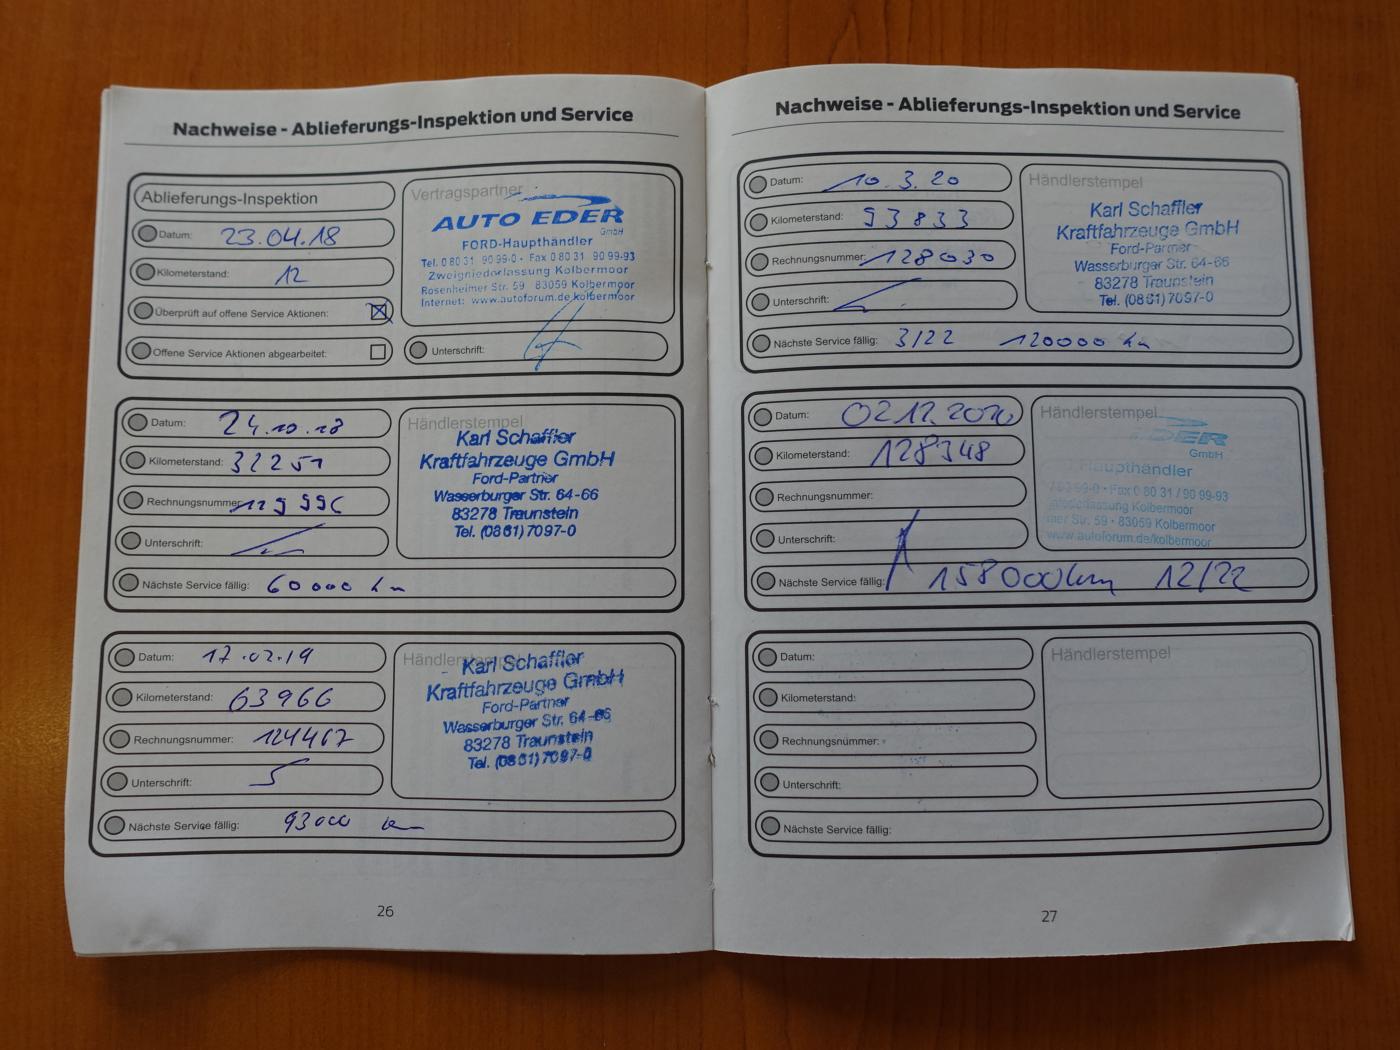 Nachweise - Ablieferungs-Inspektion und Service
Ablieferungs-Inspektion
Datum: 23.04.18
Kilometerstand: 12
Überprüft auf offene Service Aktionen:
Offene Service Aktionen abgearbeitet:
Vertragspartner
AUTO EDER
GmbH
FORD-Haupthändler
Tel. 0 80 31 90 99-0 • Fax 0 80 31 90 99-93
Zweigniederlassung Kolbermoor
Rosenheimer Str. 59 83059 Kolbermoor
Internet: www.autoforum.de/kolbermoor
Unterschrift:
Datum: 24.10.18
Kilometerstand: 32251
Rechnungsnummer:
Unterschrift:
Händlerstempel
Karl Schaffler
Kraftfahrzeuge GmbH
Ford-Partner
Wasserburger Str. 64-66
83278 Traunstein
Tel. (0861) 7097-0
Nächste Service fällig: 60000 km
Datum: 17.07.19
Kilometerstand: 63966
Rechnungsnummer: 124467
Unterschrift:
Händlerstempel
Karl Schaffler
Kraftfahrzeuge GmbH
Ford-Partner
Wasserburger Str. 64-66
83278 Traunstein
Tel. (0861) 7097-0
Nächste Service fällig: 93000 km
26
Nachweise - Ablieferungs-Inspektion und Service
Datum: 10.3.20
Kilometerstand: 93833
Rechnungsnummer: 128030
Unterschrift:
Händlerstempel
Karl Schaffler
Kraftfahrzeuge GmbH
Ford-Partner
Wasserburger Str. 64-66
83278 Traunstein
Tel. (0861) 7097-0
Nächste Service fällig: 3/22 120000 km
Datum: 02.12.2020
Kilometerstand: 128348
Rechnungsnummer:
Unterschrift:
Händlerstempel
EDER
GmbH
Haupthändler
99-0 • Fax 0 80 31 / 90 99-93
niederlassung Kolbermoor
mer Str. 59 • 83059 Kolbermoor
www.autoforum.de/kolbermoor
Nächste Service fällig: 158000km 12/22
Datum:
Kilometerstand:
Rechnungsnummer:
Unterschrift:
Händlerstempel
Nächste Service fällig:
27